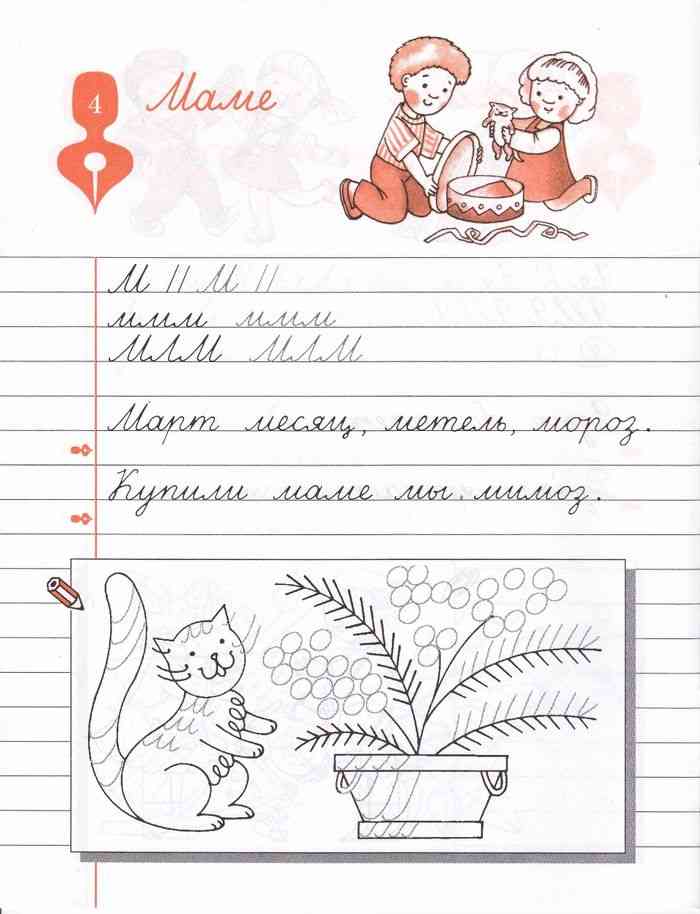 4
Маме
М М
ммм ммм
МММ МММ
Март месяц, метель, мороз.
Купили маме мы мимоз.